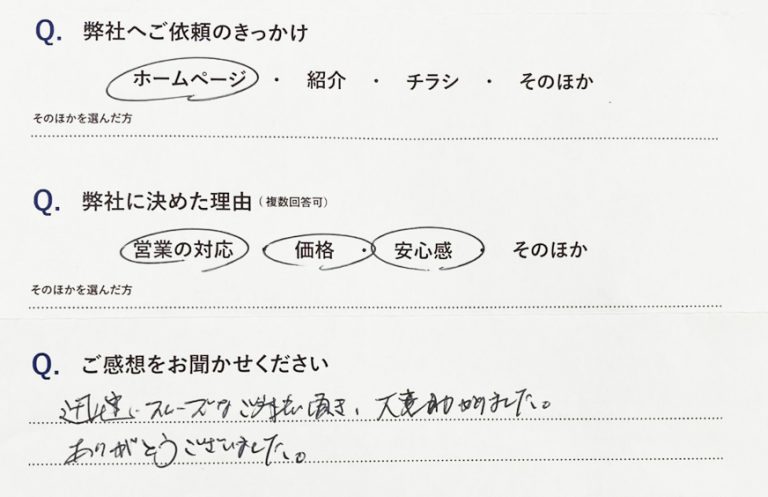 Q. 弊社へご依頼のきっかけ
ホームページ ・ 紹介 ・ チラシ ・ そのほか
そのほかを選んだ方
Q. 弊社に決めた理由（複数回答可）
営業の対応 ・ 価格 ・ 安心感 ・ そのほか
そのほかを選んだ方
Q. ご感想をお聞かせください
迅速にスムーズなご対応頂き、大変助かりました。
ありがとうございました。